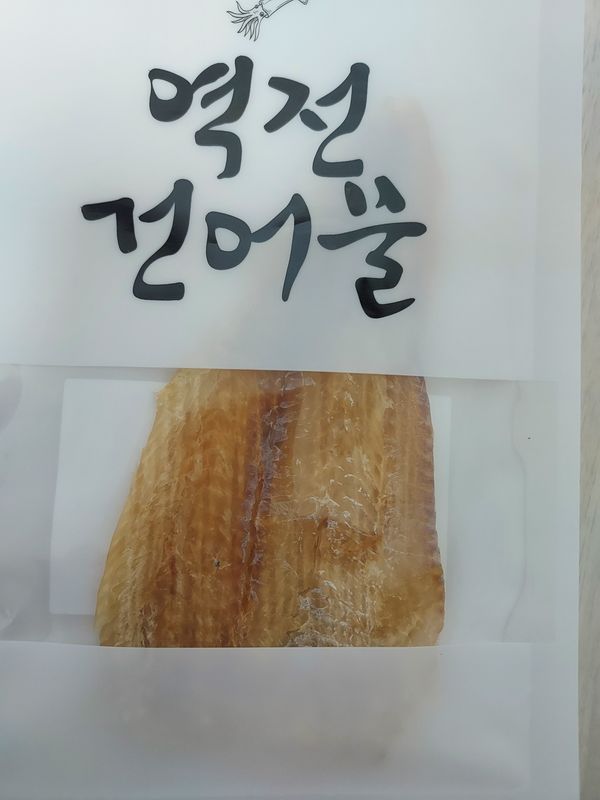 역전
건어물